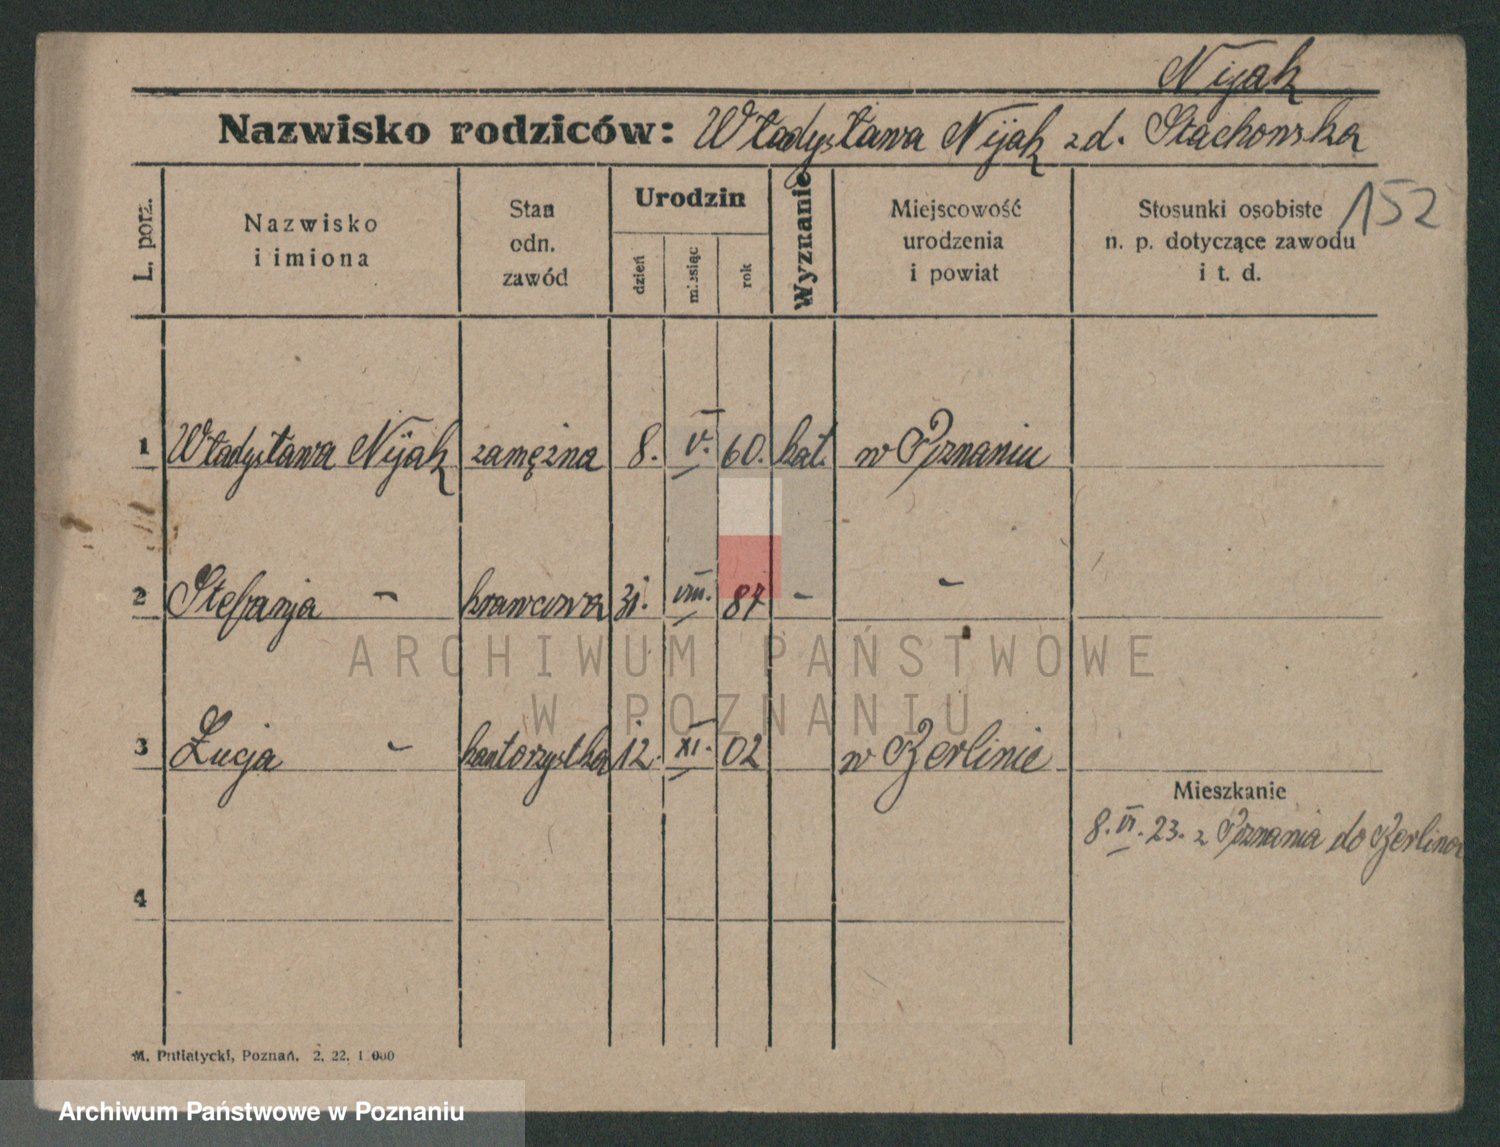 Nijak
Nazwisko rodziców: Władysława Nijak zd. Stachowska
152
L. porz.
Nazwisko
i imiona
Stan
odn.
zawód
Urodzin
dzień
miesiąc
rok
Wyznanie
Miejscowość
urodzenia
i powiat
Stosunki osobiste
n. p. dotyczące zawodu
i t. d.
1 Władysława Nijak zamężna 8. V. 60. kat. w Poznaniu
2 Stefanja - krawcowa 31. VIII. 87 - -
ARCHIWUM PAŃSTWOWE
W POZNANIU
3 Łucja - kantorzystka 12. XI. 02 w Berlinie
Mieszkanie
8. VI. 23. z Poznania do Berlina
4
M. Putiatycki, Poznań. 2. 22. 1 000
Archiwum Państwowe w Poznaniu